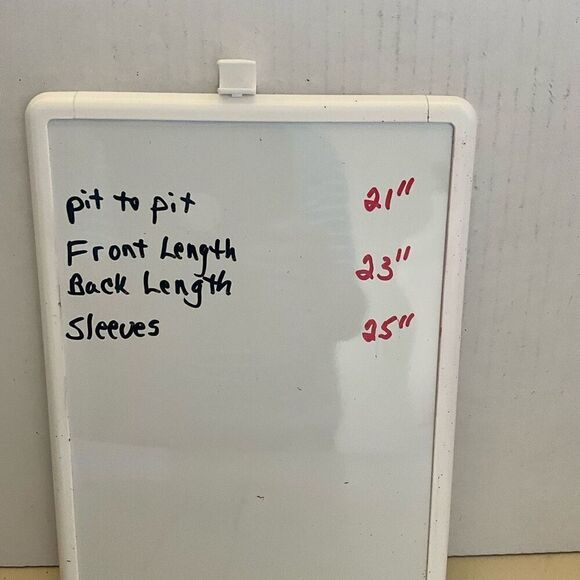 pit to pit 21"
Front Length
Back Length 23"
Sleeves 25"